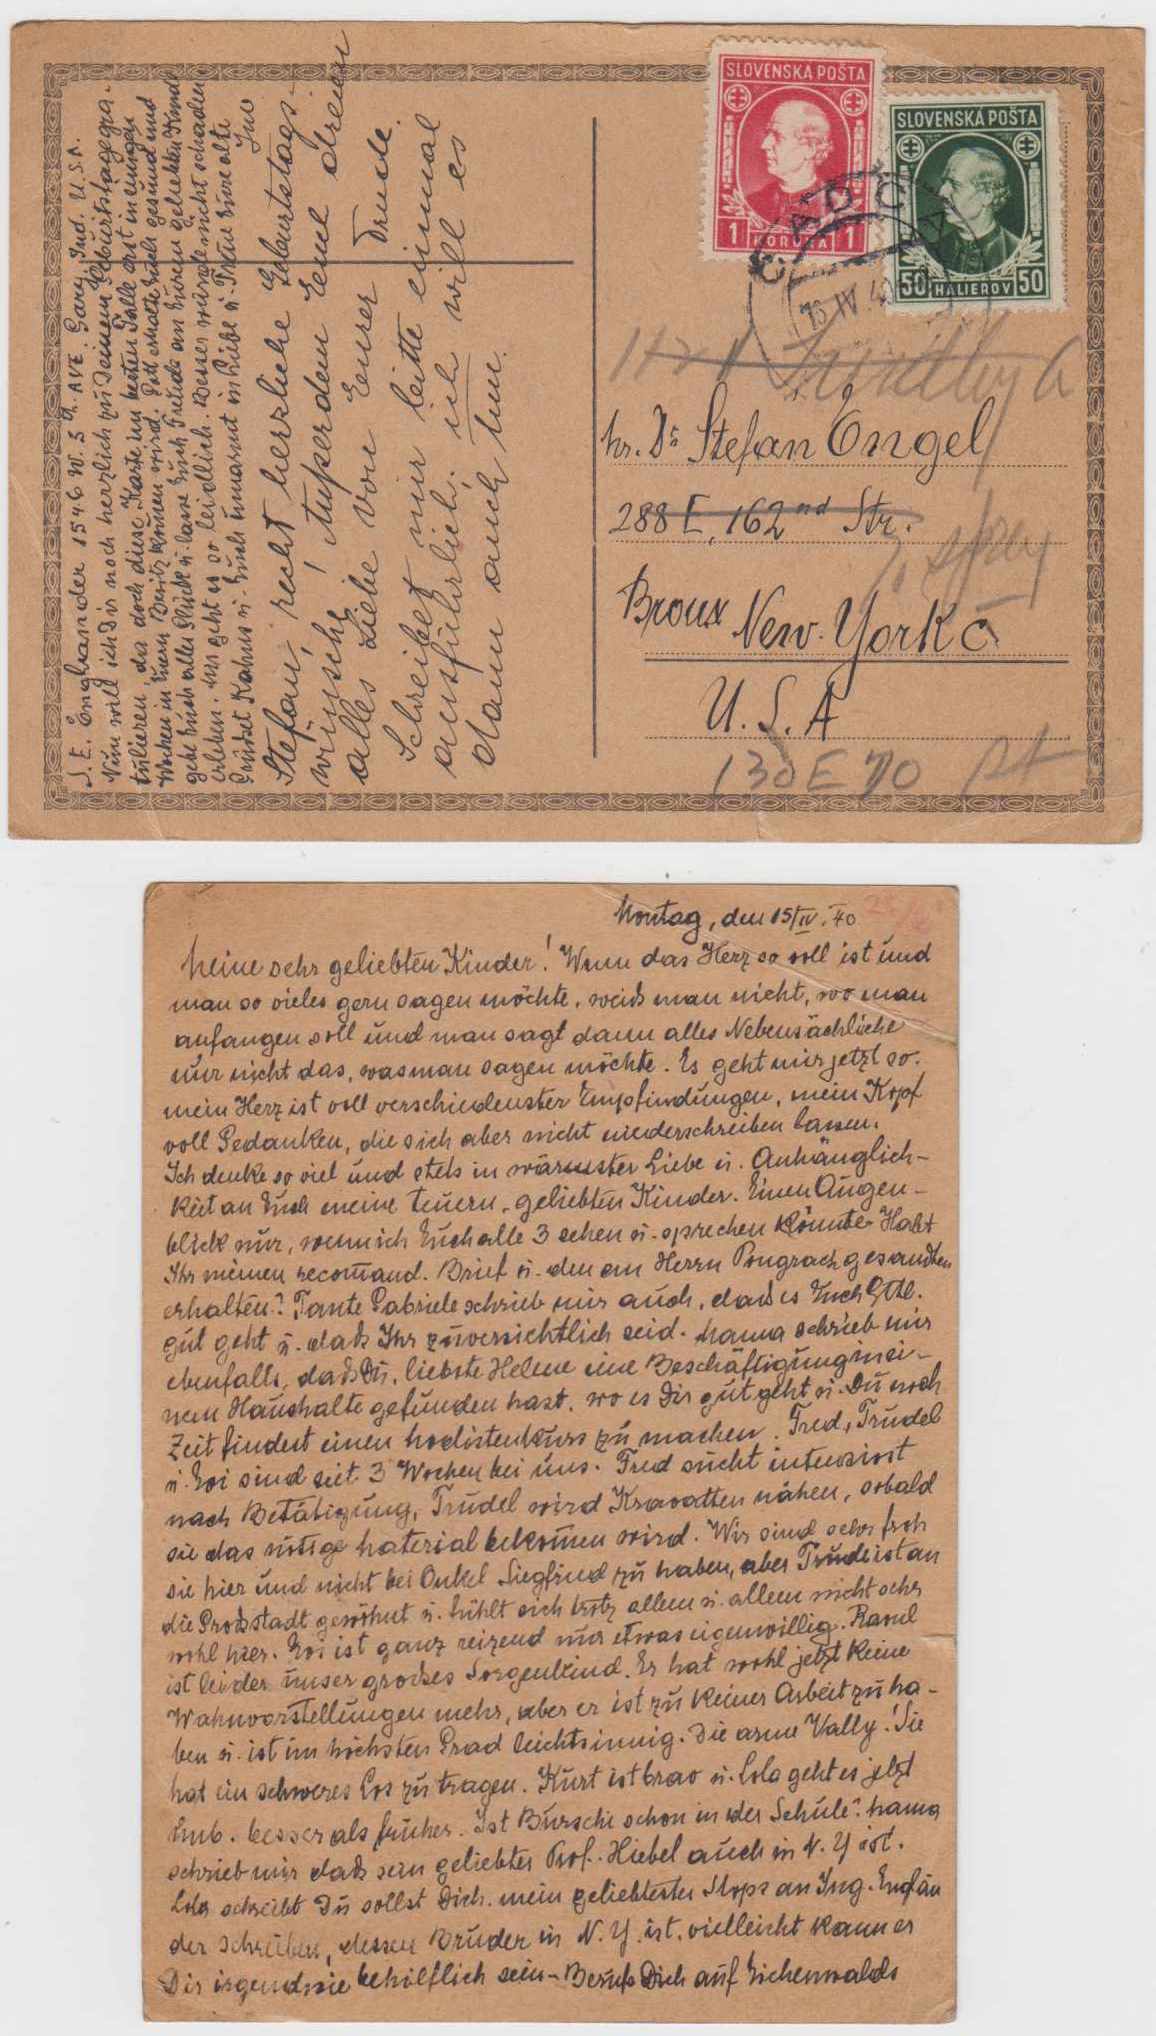 SLOVENSKÁ POŠTA
1 KORUNA 1
SLOVENSKÁ POŠTA
50 HALIEROV 50
ČADCA
15 IV 40
Hr. Dr Stefan Engel
288 E, 162nd Str.
Bronx New-York C
U.S.A
130 E 70 St
S. E. Englander 1546 W. 5th AVE. Gary, Ind. U.S.A.
Nun will ich Dir noch herzlich zu Deinem Geburtstage gra-
tulieren, da doch diese Karte im besten Falle erst in einigen
Wochen in Euern Besitz kommen wird. Gott erhalte Euch gesund und
gebe Euch alles Glück u. lasse Euch Freude an Eurem geliebten Kind
erleben. Uns geht es so leidlich. Besser würde nicht schaden
Grüsset Kahns u. Euch umarmt in Liebe u. Treue Eure alte
Stefan, recht herzliche Geburtstags-
wünsche! Ausserdem Euch dreien
alles Liebe von Eurer Trude.
Schreibet mir bitte einmal
ausführlich; ich will es
dann auch tun.
Montag, den 15/IV. 40
Meine sehr geliebten Kinder! Wenn das Herz so voll ist und
man so vieles gern sagen möchte, weiß man nicht, wo man
anfangen soll und man sagt dann alles Nebensächliche
nur nicht das, was man sagen möchte. Es geht mir jetzt so.
mein Herz ist voll verschiedenster Empfindungen, mein Kopf
voll Gedanken, die sich aber nicht niederschreiben lassen.
Ich denke so viel und stets in wärmster Liebe u. Anhänglich-
keit an Euch meine teuern, geliebten Kinder. Einen Augen-
blick nur, wenn ich Euch alle 3 sehen u. sprechen könnte. Habt
Ihr meinen recomand. Brief u. den an Herrn Pongracz gesandten
erhalten? Tante Gabriele schrieb mir auch, daß es Euch Gttl.
gut geht u. daß Ihr zuversichtlich seid. Hanna schrieb mir
ebenfalls, daß Du, liebste Helene eine Beschäftigung in ei-
nem Haushalte gefunden hast, wo es Dir gut geht u. Du noch
Zeit findest einen Modistenkurs zu machen. Fred, Trudel
u. Evi sind seit 3 Wochen bei uns. Fred sucht intensivst
nach Betätigung, Trudel wird Kravatten nähen, sobald
sie das nötige Material bekommen wird. Wir sind sehr froh
sie hier und nicht bei Onkel Siegfried zu haben, aber Trude ist an
die Großstadt gewöhnt u. fühlt sich trotz allem u. allem nicht sehr
wohl hier. Evi ist ganz reizend nur etwas eigenwillig. Raoul
ist leider unser großes Sorgenkind. Er hat wohl jetzt keine
Wahnvorstellungen mehr, aber er ist zu keiner Arbeit zu ha-
ben u. ist im höchsten Grad leichtsinnig. Die arme Vally! Sie
hat ein schweres Los zu tragen. Kurt ist brav u. Lola geht es jetzt
besser als früher. Ist Burschi schon in der Schule? Hanna
schrieb mir daß sein geliebter Prof. Hiebel auch in N. Y ist.
Lola schreibt Du sollst Dich, mein geliebtester an Ing. Englän
der schreiben, dessen Bruder in N. Y. ist, vielleicht kann er
Dir irgendwie behilflich sein. Beruf Dich auf Eichenwalds